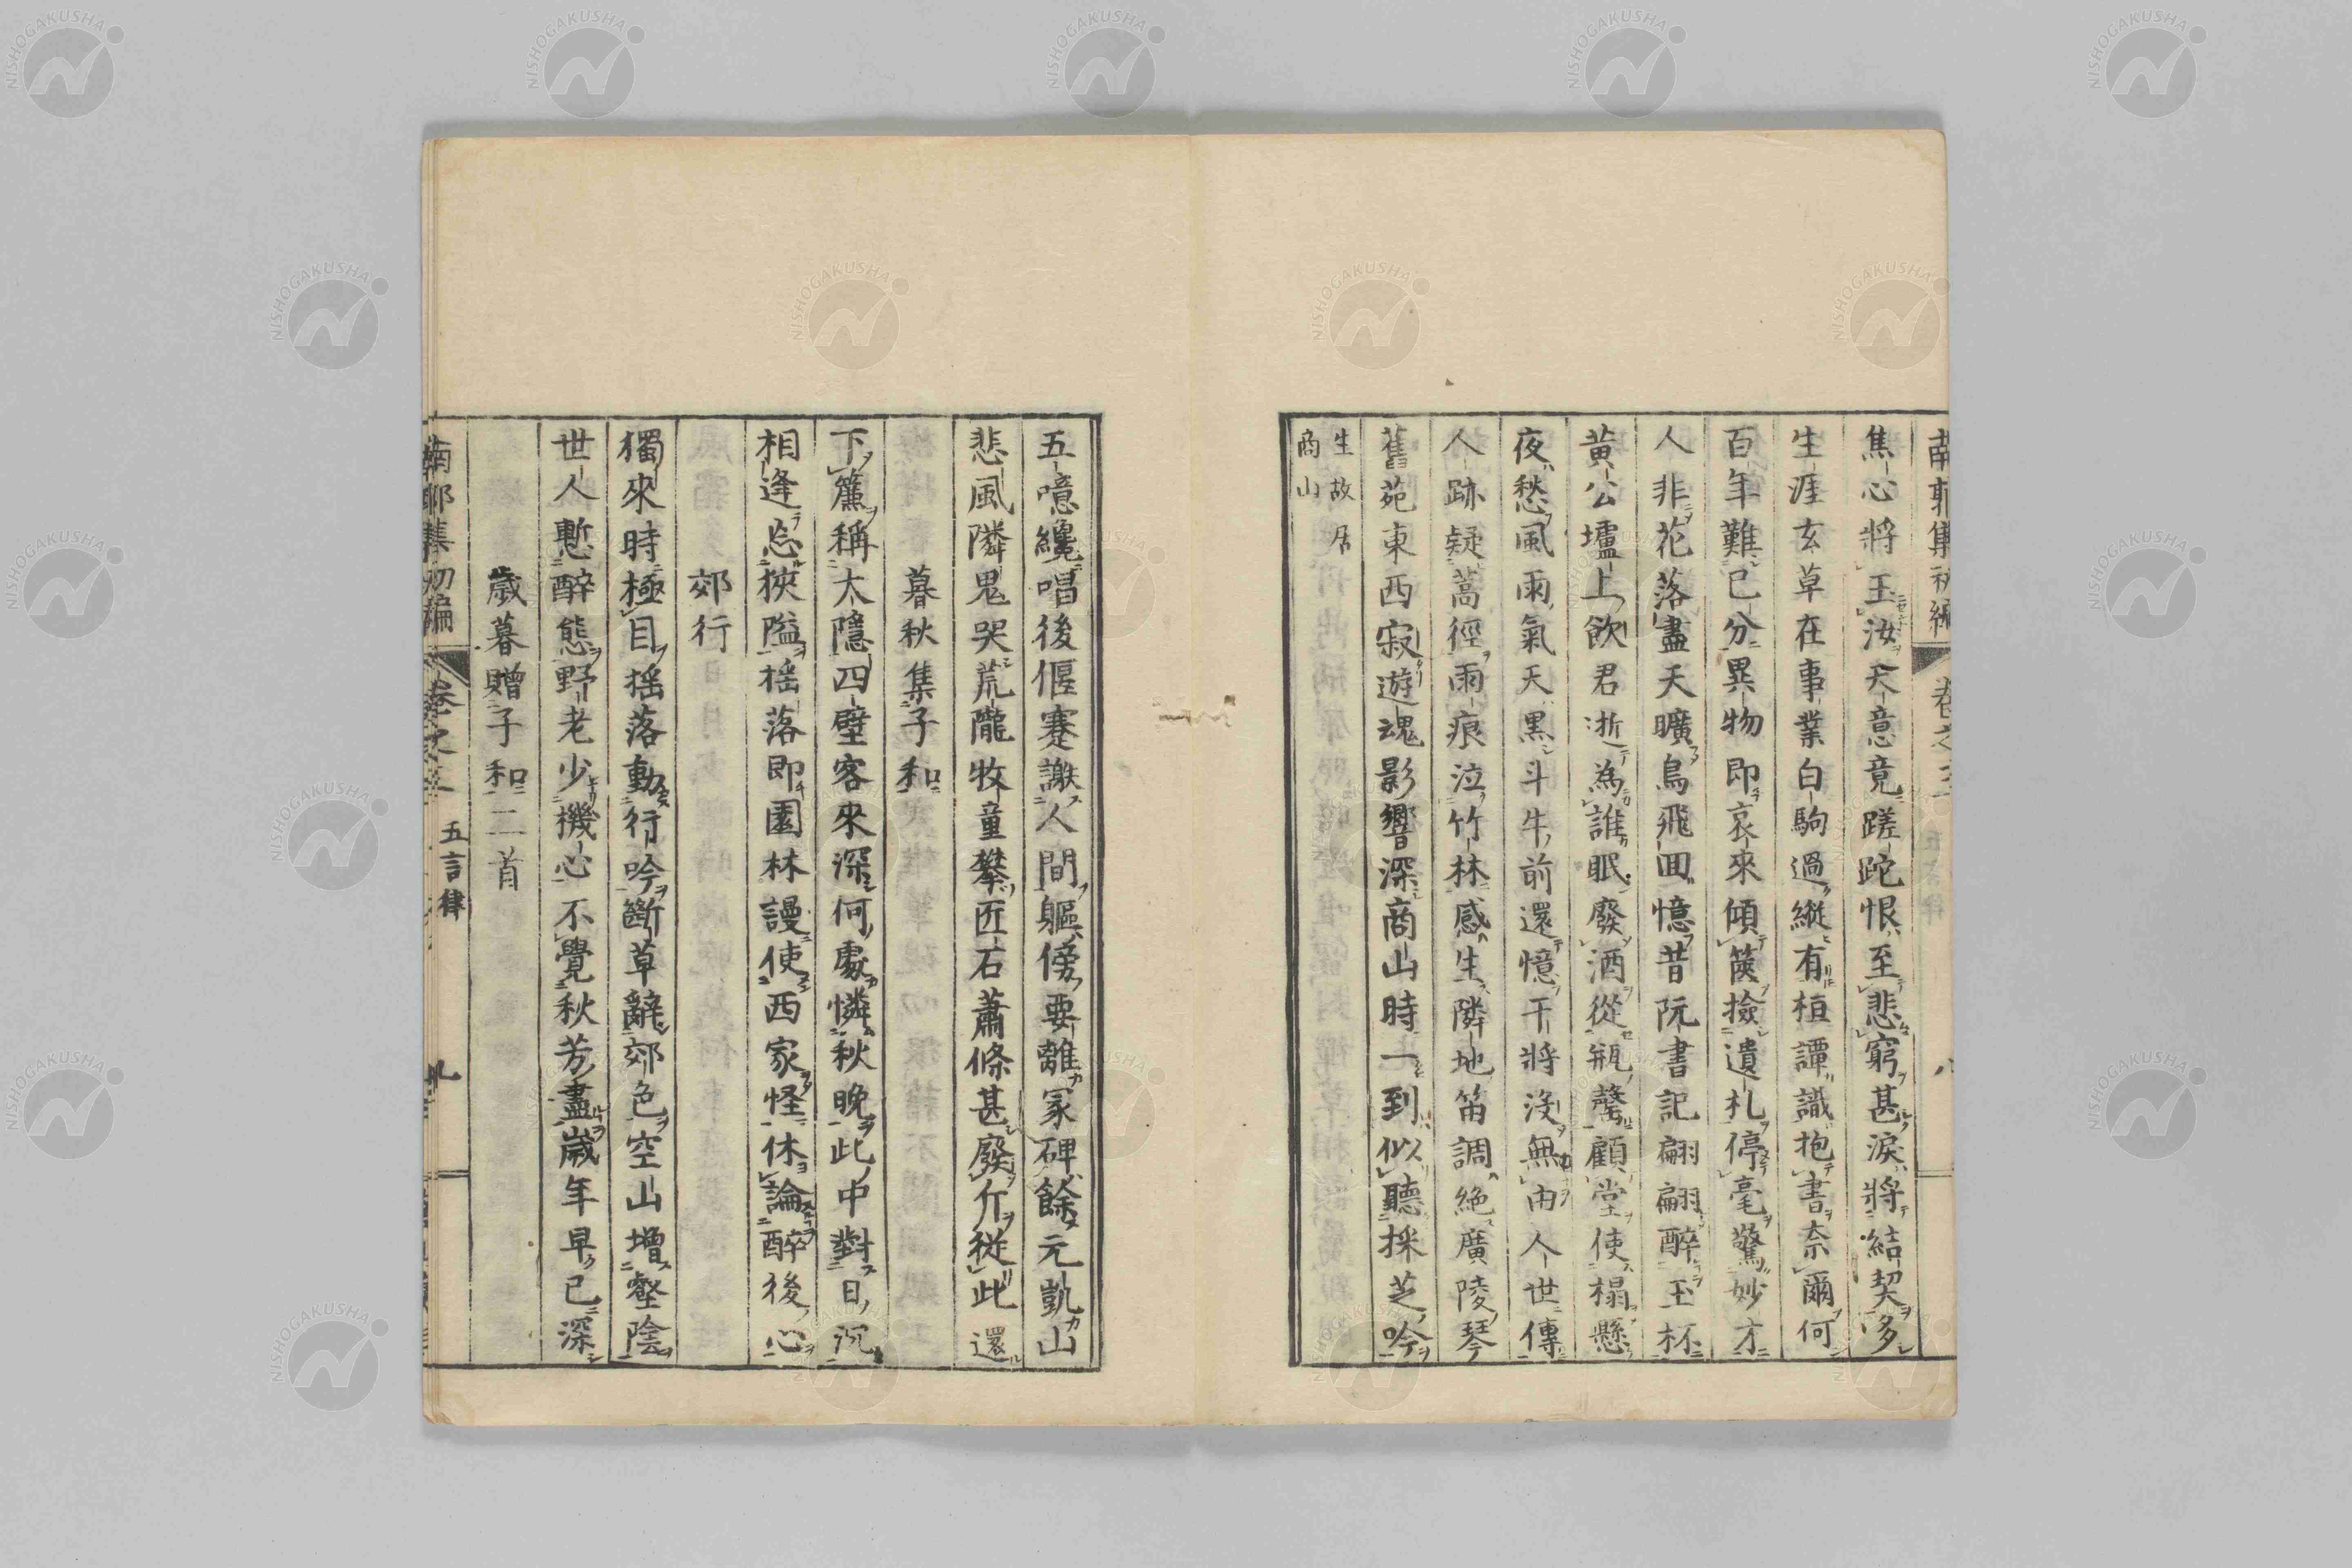 南郭集初編 卷之三
焦心將玉汝天意竟蹉跎恨至悲窮甚淚將結契多
生涯玄草在事業白駒過縱有桓譚識抱書奈爾何
百年難已分異物即哀來傾篋撿遺札停毫驚妙才
人非花落盡天曠鳥飛回憶昔阮書記翩翩醉玉杯
黃公壚上飲君逝為誰眠廢酒從瓶罄顧堂使榻懸
夜愁風雨氣天黑斗牛前還憶干將沒無由人世傳
人跡疑蒿徑雨痕泣竹林感生隣地笛調絶廣陵琴
舊苑東西寂遊魂影響深商山時一到似聽採芝吟
生故居
商山
五噫纔唱後偃蹇謝人間軀傍要離冢碑餘元凱山
悲風隣鬼哭荒隴牧童攀匠石蕭條甚廢斤從此還
暮秋集子和
下簾稱大隱四壁客來深何處憐秋晚此中對日沉
相逢忘狹隘搖落即園林謾使西家怪休論醉後心
郊行
獨來時極目搖落動行吟斷草辭郊色空山增壑陰
世人慙醉態野老少機心不覺秋芳盡歲年早已深
歲暮贈子和二首
南郭集初編 卷之三 五言律 九